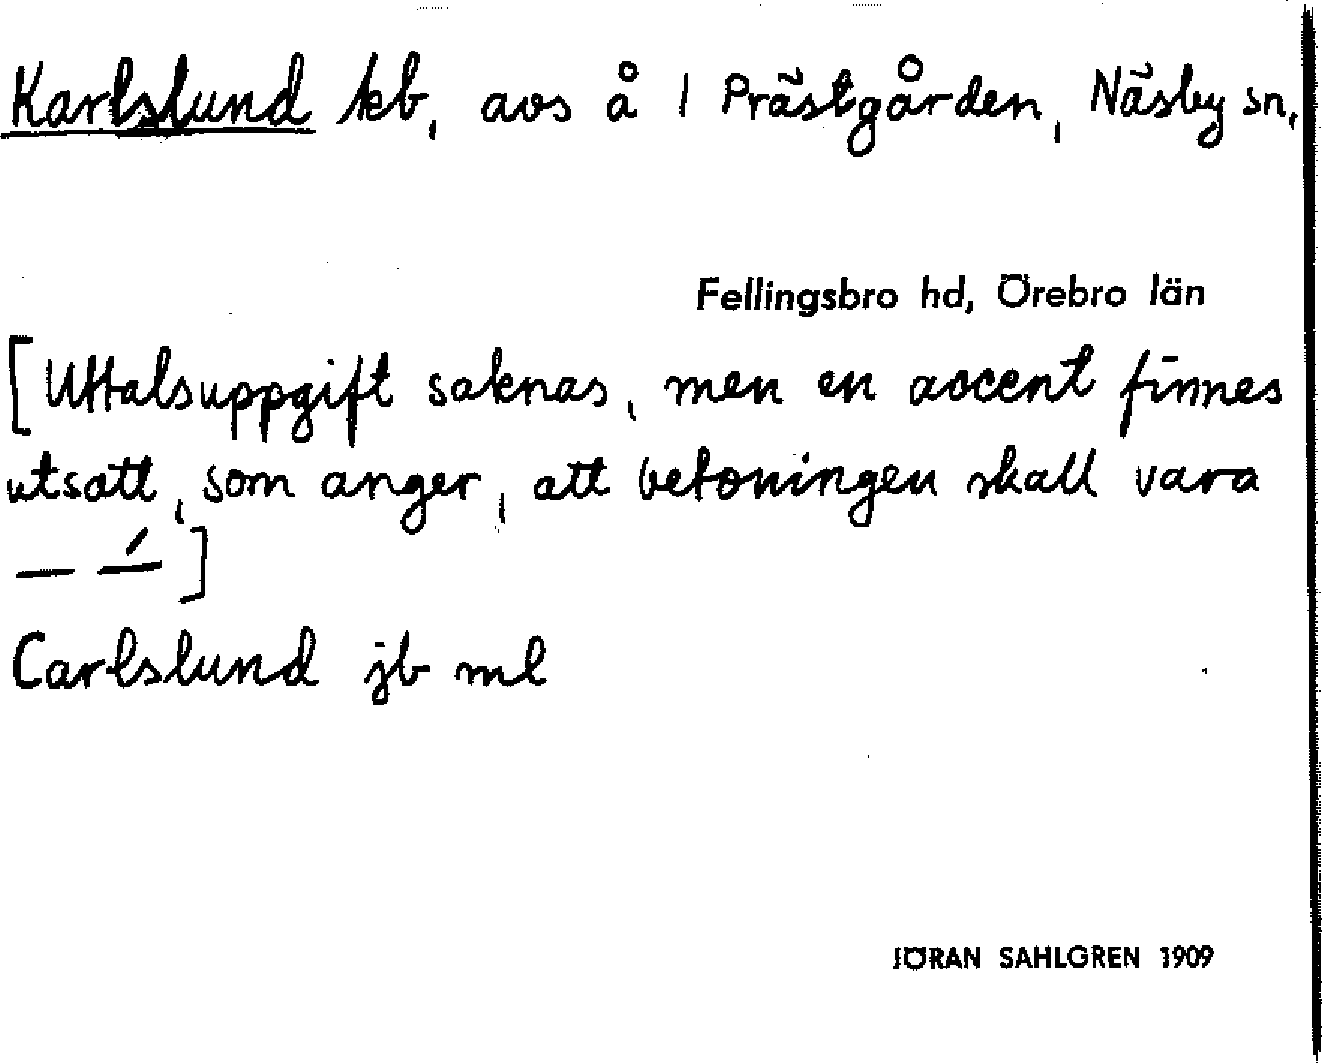 Karlslund kb, avs å 1 Prästgården, Näsby sn,
Fellingsbro hd, Örebro län
[Uttalsuppgift saknas, men en accent finnes
utsatt, som anger, att betoningen skall vara
— —́ ]
Carlslund jb ml
JÖRAN SAHLGREN 1909